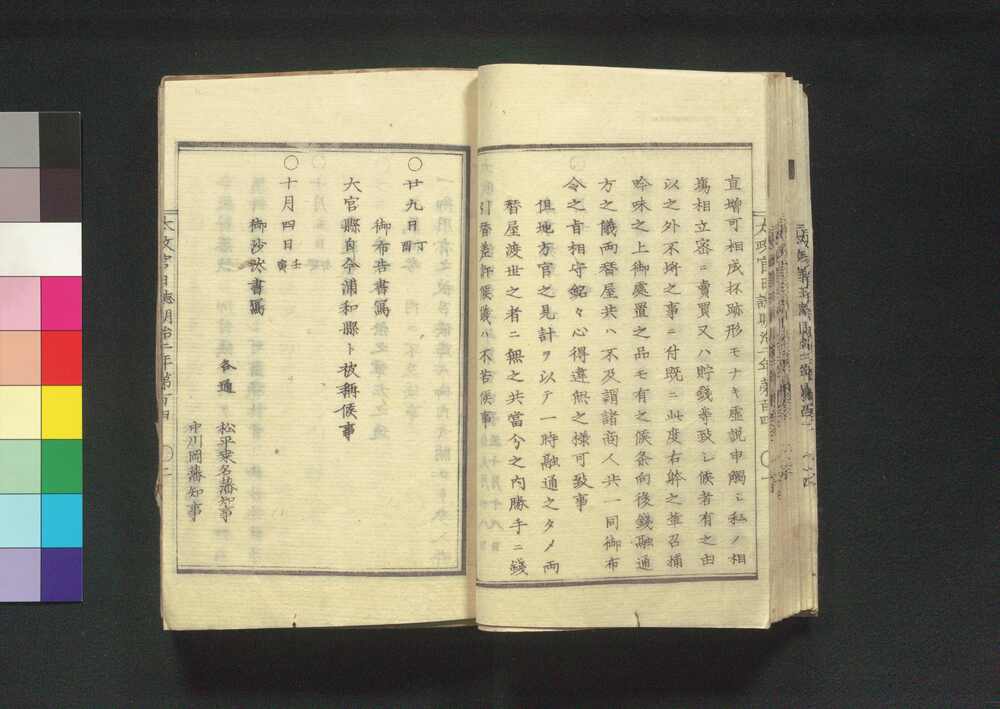 直増可相成杯跡形モナキ虚説申觸シ私ノ相
塲相立窋ニ賣買又ハ貯錢等致シ候者有之由
以之外不埒之事ニ付既ニ此度右躰之輩召捕
吟味之上御處置之品モ有之候条向後錢融通
方之儀両替屋共ハ不及謂諸商人共一同御布
令之旨相守銘々心得違無之様可致事
但地方官之見計ヲ以テ一時融通之タメ両
替屋渡世之者ニ無之共當今之内勝手ニ錢
引替差許候儀ハ不苦候事
太政官日誌明治二年第百四
〇廿九日丁酉
御布告書寫
大宮縣自今浦和縣ト被稱候事
〇十月四日壬寅
御沙汰書寫
各通
松平桑名藩知事
中川岡藩知事
太政官日誌明治二年第百四
〇二